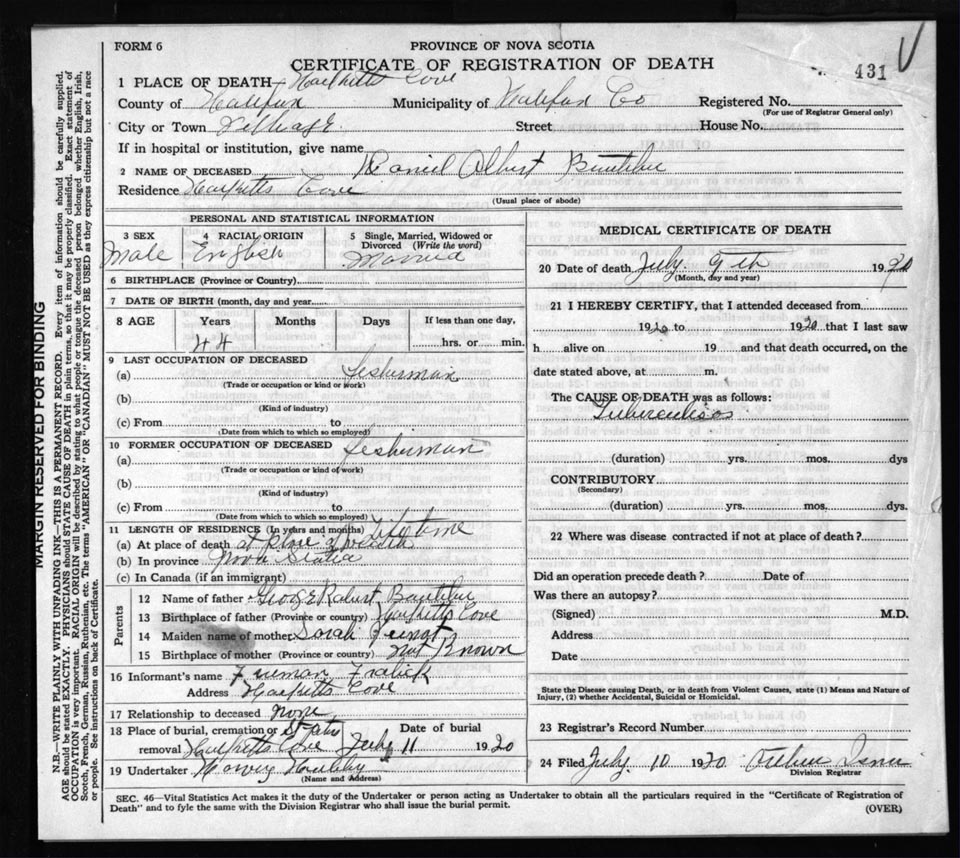 FORM 6
PROVINCE OF NOVA SCOTIA
CERTIFICATE OF REGISTRATION OF DEATH
431
1 PLACE OF DEATH— Cove
County of Halifax Municipality of Halifax Co Registered No.
(For use of Registrar General only)
City or Town Village Street House No.
If in hospital or institution, give name
2 NAME OF DECEASED Daniel Albert Boutilier
Residence Cove
(Usual place of abode)
PERSONAL AND STATISTICAL INFORMATION
3 SEX 4 RACIAL ORIGIN 5 Single, Married, Widowed or Divorced (Write the word)
Male English Married
6 BIRTHPLACE (Province or Country)
7 DATE OF BIRTH (month, day and year)
8 AGE Years Months Days If less than one day,
44 hrs. or min.
9 LAST OCCUPATION OF DECEASED
(a) fisherman
(Trade or occupation or kind or work)
(b)
(Kind of industry)
(c) From to
(Date from which to which so employed)
10 FORMER OCCUPATION OF DECEASED
(a) fisherman
(Trade or occupation or kind of work)
(b)
(Kind of industry)
(c) From to
(Date from which to which so employed)
11 LENGTH OF RESIDENCE (In years and months) Life time
(a) At place of death at place of
(b) In province Nova Scotia
(c) In Canada (if an immigrant)
Parents
12 Name of father George Robert Boutilier
13 Birthplace of father (Province or country) Cove
14 Maiden name of mother Sarah
15 Birthplace of mother (Province or country) Not Known
16 Informant's name Freeman Fralick
Address Cove
17 Relationship to deceased none
18 Place of burial, cremation or removal Cove Date of burial July 11 1920
19 Undertaker Harvey
(Name and Address)
MEDICAL CERTIFICATE OF DEATH
20 Date of death July 9th 1920
(Month, day and year)
21 I HEREBY CERTIFY, that I attended deceased from
1920 to 1920 that I last saw
h alive on 19 and that death occurred, on the
date stated above, at m.
The CAUSE OF DEATH was as follows:
Tuberculisos
(duration) yrs. mos. dys
CONTRIBUTORY
(Secondary)
(duration) yrs. mos. dys.
22 Where was disease contracted if not at place of death?
Did an operation precede death? Date of
Was there an autopsy?
(Signed) M.D.
Address
Date
State the Disease causing Death, or in death from Violent Causes, state (1) Means and Nature of
Injury, (2) whether Accidental, Suicidal or Homicidal.
23 Registrar's Record Number
24 Filed July 10 1920
Division Registrar
SEC. 46—Vital Statistics Act makes it the duty of the Undertaker or person acting as Undertaker to obtain all the particulars required in the "Certificate of Registration of
Death" and to fyle the same with the Division Registrar who shall issue the burial permit.
(OVER)
MARGIN RESERVED FOR BINDING
N.B.—WRITE PLAINLY WITH UNFADING INK—THIS IS A PERMANENT RECORD. Every item of information should be carefully supplied.
AGE should be stated EXACTLY. PHYSICIANS should STATE CAUSE OF DEATH in plain terms, so that it may be properly classified. Exact statement of
OCCUPATION is very important. RACIAL ORIGIN will be described by stating to what people or tongue the deceased person belonged whether English, Irish,
Scotch, French, German, Russian, Ruthenian, etc. The terms "AMERICAN" OR "CANADIAN" MUST NOT BE USED as they express citizenship but not a race
or people. See instructions on back of Certificate.